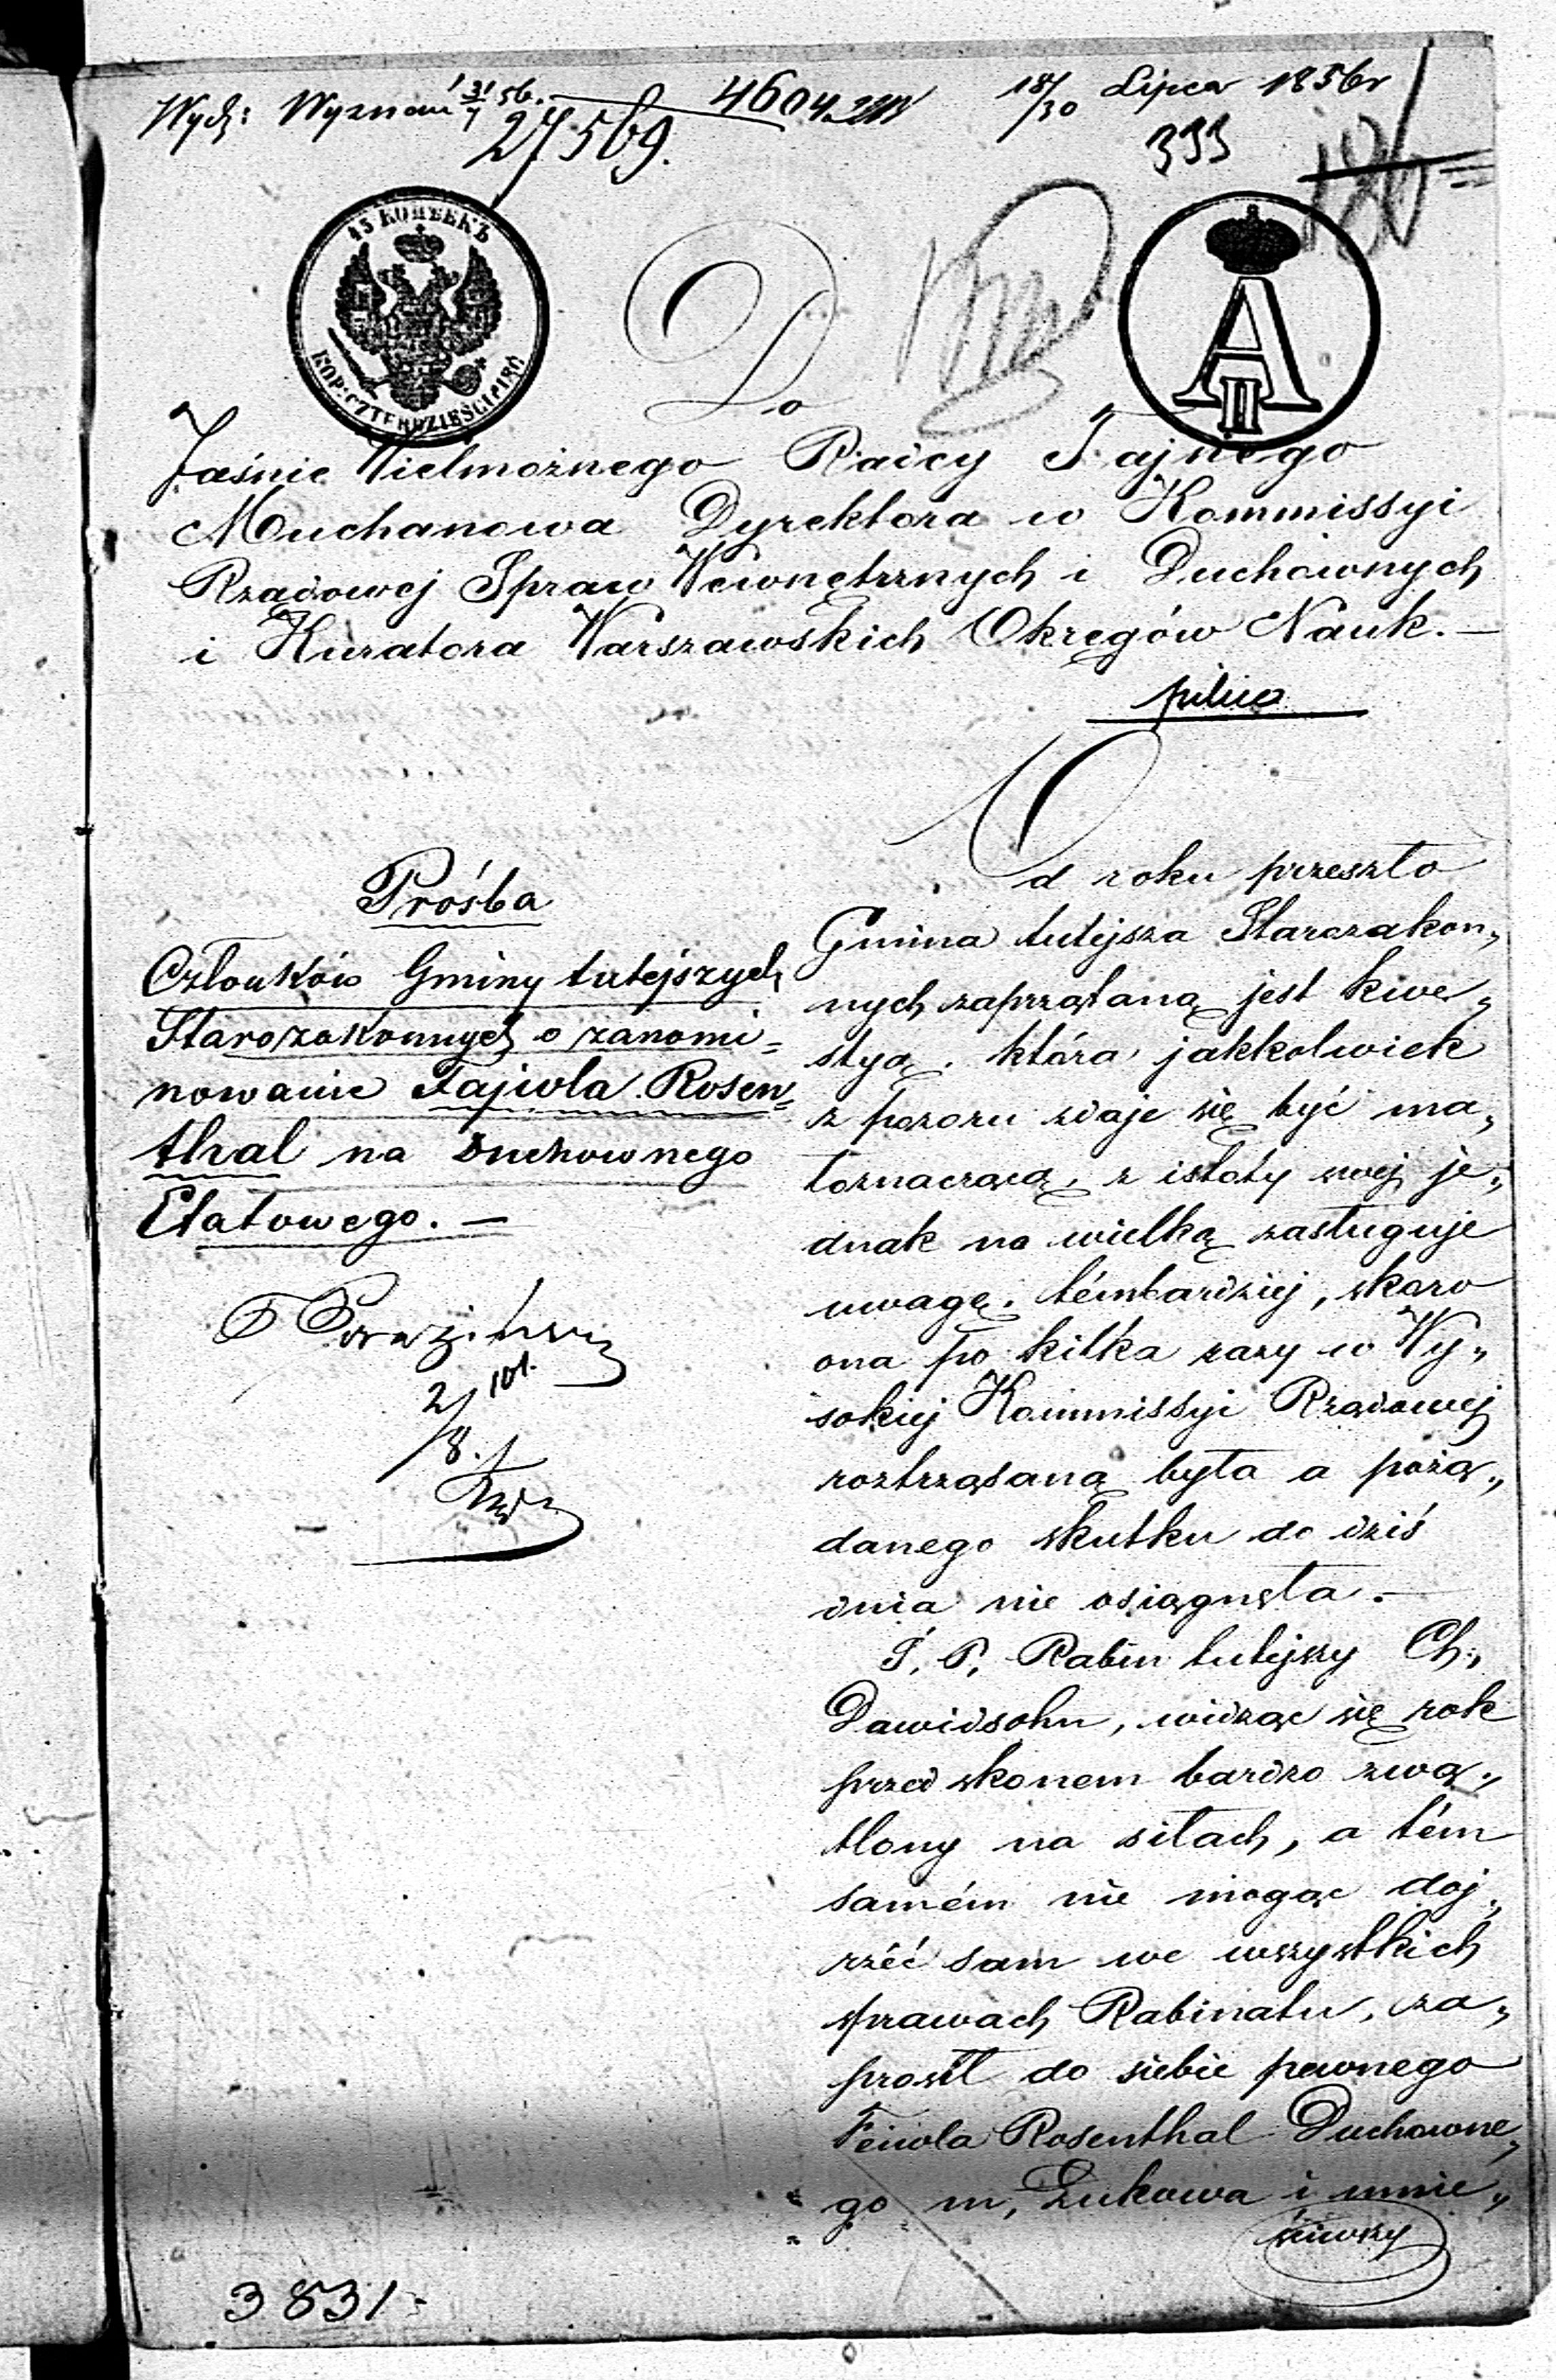 Wydz: Wyznań 31/7 56.
4604
18/30 Lipca 1856r
27569.
393
186
45 КОПѢЕКЪ
KOP: CZTERDZIEŚCI PIĘĆ
A II
Do
Jaśnie Wielmożnego Radcy Tajnego
Muchanowa Dyrektora w Kommissyi
Rządowej Spraw Wewnętrznych i Duchownych
i Kuratora Warszawskich Okręgów Nauk. —
pilno
Prośba
Członków Gminy tutejszych
Starozakonnych o zanomi=
nowanie Fajwla Rosen=
thal na Duchownego
Etatowego. —
2/8.
Od roku przeszło
Gmina tutejsza Starozakon„
nych zaprzątaną jest kwe„
styą, która jakkolwiek
z pozoru zdaje się być ma„
łoznaczącą, z istoty swej je„
dnak na wielką zasługuje
uwagę, témbardziej, skoro
ona po kilka razy w Wy„
sokiej Kommissyi Rządowej
roztrząsaną była a pożą„
danego skutku do dziś
dnia nie osiągnęła. —
Ś. P. Rabin tutejszy Ch:
Dawidsohn, widząc się rok
przed skonem bardzo zwą„
tlony na siłach, a tém
samém nie mogąc doj„
rzéć sam we wszystkich
sprawach Rabinatu, za„
prosił do siebie pewnego
Feiwla Rosenthal Duchowne„
go m, Łukowa i umie„
ściwszy
3831